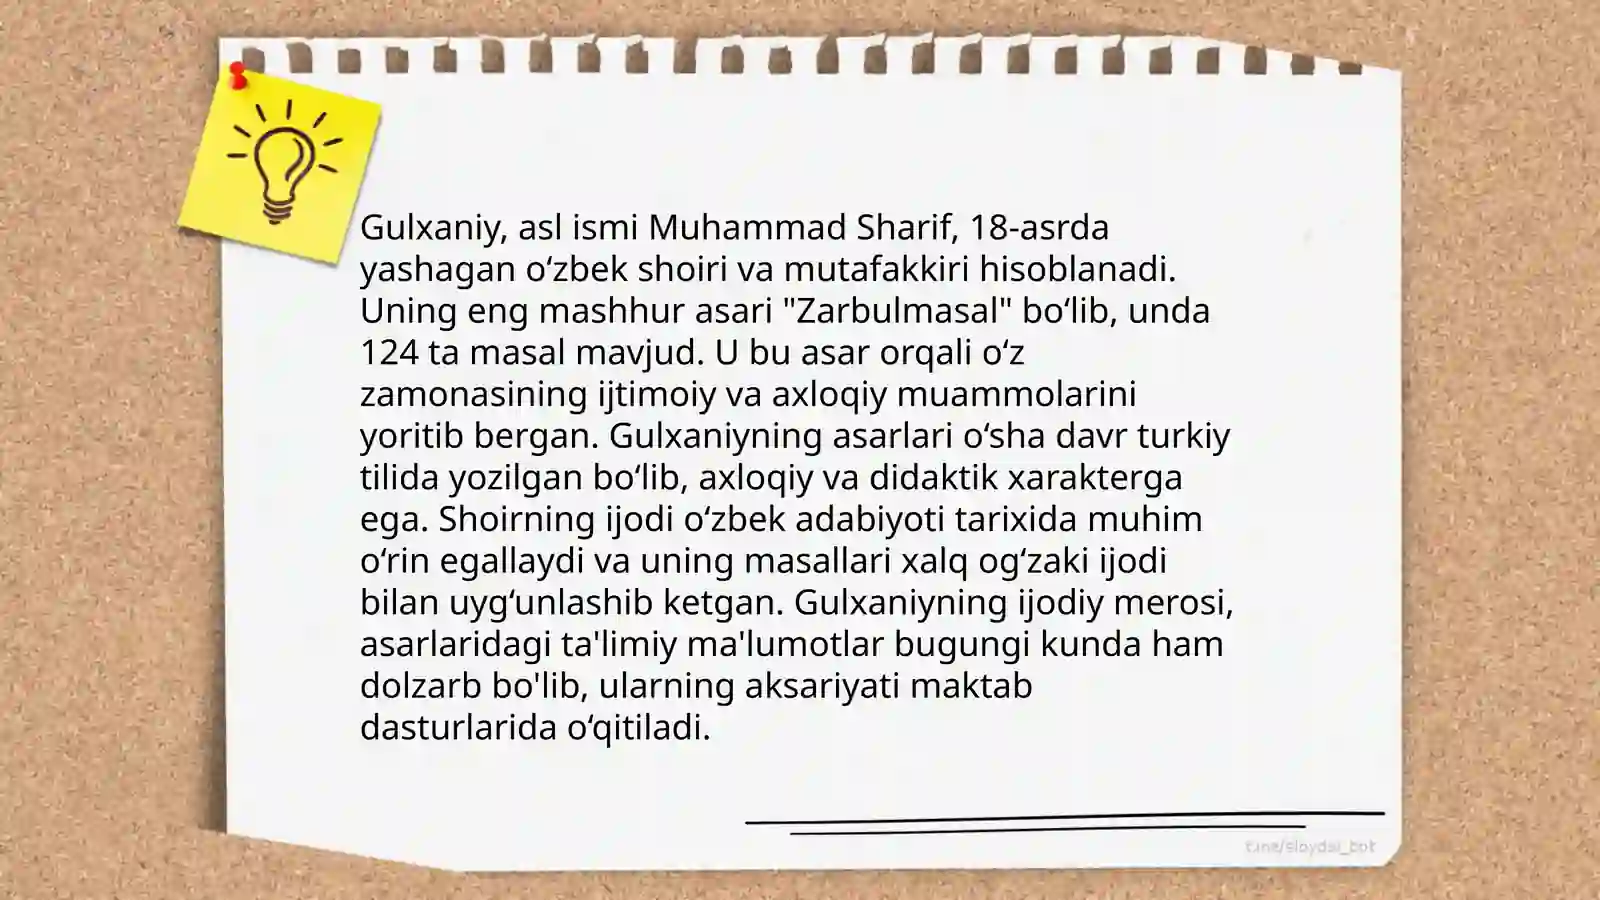 Gulxaniy, asl ismi Muhammad Sharif, 18-asrda
yashagan o‘zbek shoiri va mutafakkiri hisoblanadi.
Uning eng mashhur asari "Zarbulmasal" bo‘lib, unda
124 ta masal mavjud. U bu asar orqali o‘z
zamonasining ijtimoiy va axloqiy muammolarini
yoritib bergan. Gulxaniyning asarlari o‘sha davr turkiy
tilida yozilgan bo‘lib, axloqiy va didaktik xarakterga
ega. Shoirning ijodi o‘zbek adabiyoti tarixida muhim
o‘rin egallaydi va uning masallari xalq og‘zaki ijodi
bilan uyg‘unlashib ketgan. Gulxaniyning ijodiy merosi,
asarlaridagi ta'limiy ma'lumotlar bugungi kunda ham
dolzarb bo'lib, ularning aksariyati maktab
dasturlarida o‘qitiladi.